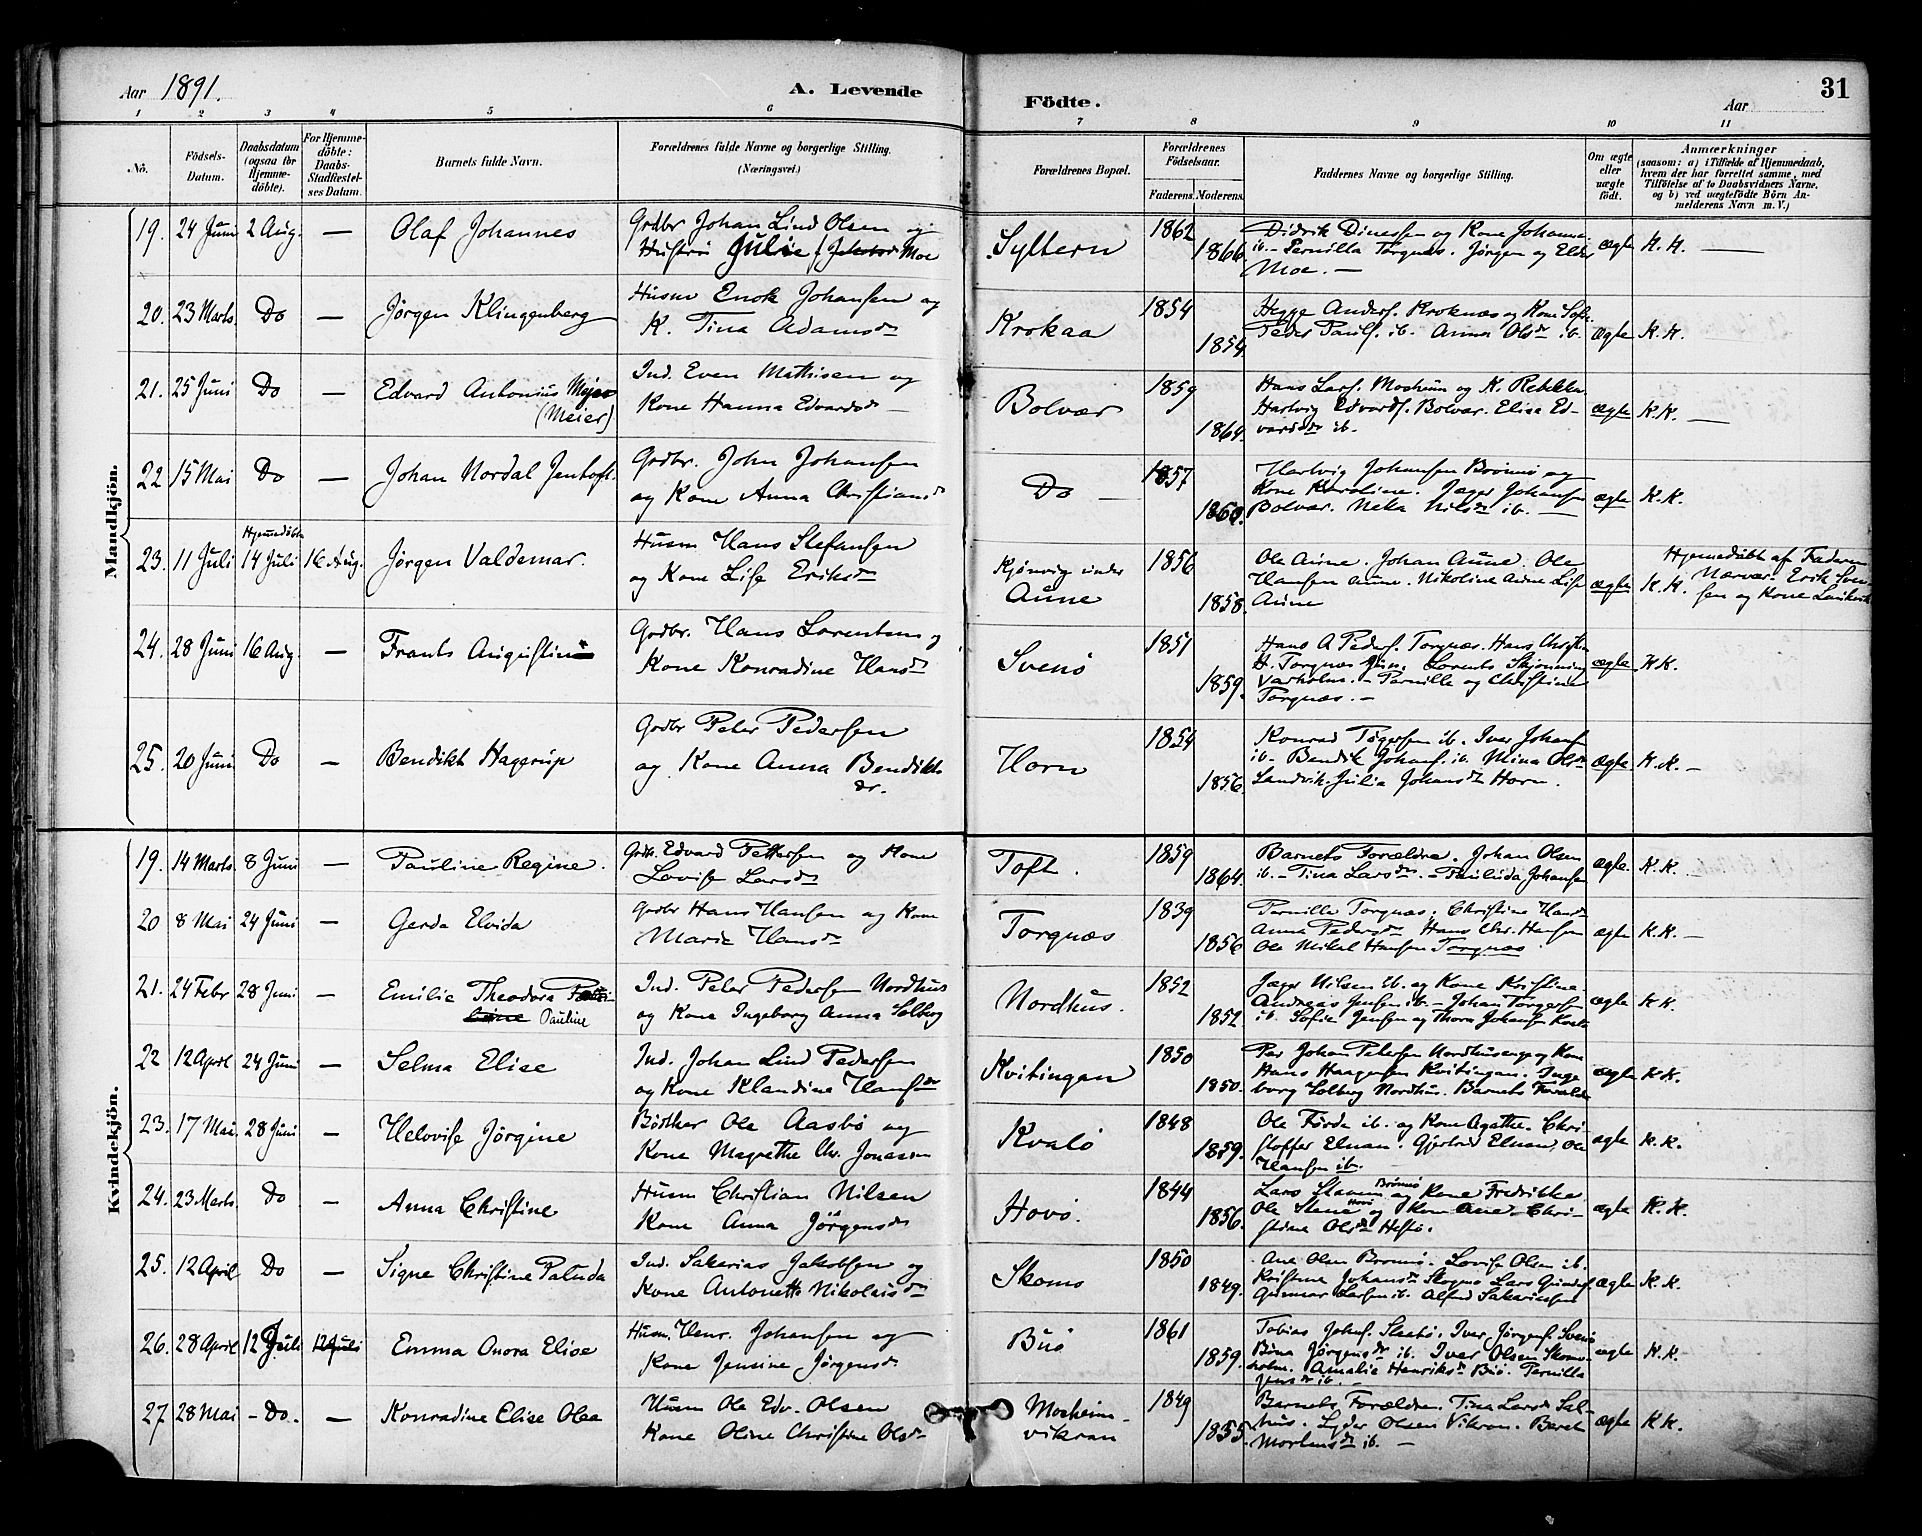 Aar 1891.
A. Levende
Födte.
Aar
31
1 2 3 4 5 6 7 8 9 10 11
No.
Födsels-Datum.
Daabsdatum (ogsaa for Hjemmedöbte).
For Hjemmedöbte: Daabs-Stadfestelses Datum.
Barnets fulde Navn.
Forældrenes fulde Navne og borgerlige Stilling. (Næringsvei.)
Forældrenes Bopæl.
Forældrenes Födselsaar.
Faderens. Moderens.
Faddernes Navne og borgerlige Stilling.
Om ægte eller uægte födt.
Anmærkninger
(saasom: a) i Tilfælde af Hjemmedaab, hvem der har forrettet samme, med Tilföielse af to Daabsvidners Navne, og b) ved uægtefödte Börn Anmelderens Navn m. V.)
Mandkjön.
19. 24 Juni 2 Aug. — Olaf Johannes
Grdbr Johan Lind Olsen og
Hustru Julie Moe
Syltern 1862 1866
Didrik Dinessen og Kone Johanna
ib. – Pernilla Torgnæs. Jörgen og
Moe. —
ægte K. K. —
20. 23 Marts. Do — Jörgen Klingenberg
Husm Enok Johansen og
K. Tina Adamsdr
Krokaa 1854 1854
Hegge Anders. Kroknæs og Kone
Peder Pauls. ib. Anna Olsdr ib.
ægte K. K.
21. 25 Juni Do — Edvard Antonius
(Meier)
Ind. Even Mathisen og
Kone Hanna Edvardsdr —
Bolvær 1859 1864.
Hans Lars. Mosheim og K. Rebekka
Hartvig Edvards. Bolvær. Elisa Ed-
vardsdr ib.
ægte K. K. —
22 15 Mai Do — Johan Nordal Jentoft.
Grdbr. John Johansen
og Kone Anna Christiansdr
Do — 1857 1860.
Hartvig Johansen Brönnö og
Kone Karoline. Jæger Johansen
Bolvær. Neka Nilsdr ib. —
ægte K. K.
23. 11 Juli Hjemmedöbt 14 Juli 16 Aug. Jörgen Valdemar.
Husm Hans Stefansen
og Kone Lise Eriksdr
Kjönvig under
Aune
1856 1858.
Ole Aune. Johan Aune. Ole
Hansen Aune. Nikoline Aune Lise
Aune
ægte K. K.
Hjemmedöbt af Faderen
Nærvær. Erik Sven-
sen og Kone
24. 28 Juni 16 Aug. — Frants Augustin
Grdbr. Hans Lorentsen og
Kone Konradine Hansdr
Svenö 1851 1859.
Hans A Peders. Torgnæs. Hans Christen
H. Torgnæs Lorents Skjönning
Varholm. – Pernille og Christine
Torgnæs. —
ægte. K K.
25. 20 Juni Do — Bendikt Hagerup
Grdbr Peter Pedersen
og Kone Anna Bendikts
dr.
Horn 1854 1856.
Konrad Tögersen ib. Iver Johans
ib. Bendik Johans. ib. Mina Olsdr
Sandvik. Julia Johansdr Horn.
ægte. K. K. —
Kvindekjön.
19. 14 Marts. 8 Juni — Pauline Regine.
Grdbr. Edvard Pettersen og Kone
Lovise Larsdr
Toft. 1859 1864.
Barnets Forældre. Johan Olsen
ib. – Tina Larsdr. – Paulida Johansen
ægte. K. K. —
20 8 Mai 24 Juni — Gerda Elvida
Grdbr Hans Hansen og Kone
Marie Hansdr
Torgnæs 1839 1856
Pernille Torgnæs. Christine Hansdr
Anna Pedersdr Hans Chr. Hansen
Ole Mikal Hansen Torgnæs
ægte K. K. —
21. 24 Febr 28 Juni — Emilie Theodora
Pauline
Ind. Peter Pedersen Nordhus
og Kone Ingeborg Anna Solberg
Nordhus. 1852 1852
Jæger Nilsen ib. og Kone Kristine.
Andreas Jensen ib. – Johan Torgersen
ib. Sofie Jensen og Thora Johansen
ægte K K.
22 12 April 24 Juni — Selma Elise
Ind. Johan Lind Pedersen
og Kone Klaudine Hansdr
Kvitingan 1850 1850.
Per Johan Petersen Nordhuseng og Kone
Hans Haagensen Kvitingan. Inge
borg Solberg Nordhus. Barnets Forældre
ægte K K.
23. 17 Mai. 28 Juni — Helovise Jörgine
Bödker Ole Aasbö og
Kone Magrethe Chr. Jonassen
Kvalö 1848 1859.
Ole Förde ib. og Kone Agathe. Chri-
stoffer Elnan. Gjertrud Elnan, Ole
Hansen ib.
ægte K. K.
24. 23 Marts. Do — Anna Christine
Husm Christian Nilsen
Kone Anna Jörgensdr
Hovö. 1844 1856.
Lars Brönnö og Kone Fredrikke.
Ole Stene Hovö og Kone Ane Chri-
stine Olsdr Hestö.
ægte K. K.
25. 12 April Do — Signe Christine Paluda
Ind. Sakarias Jakobsen og
Kone Antonette Nikolaisdr
Skomo 1850 1849.
Ane Olsen Brönnö. Lovise Olsen ib.
Kristine Johansdr Skogmo Lars
Gunnar Larsen ib. Alfred Sakariassen
ægte K. K.
26. 28 April 12 Juli 12 Juli Emma Onora Elise
Husm. Henr. Johansen og
Kone Jensine Jörgensdr
Buö 1861 1859.
Tobias Johns. Slaabö. Iver Jörgens. Svenö
Bina Jörgensdr ib. Iver Olsen Skoms-
holm. Amalie Henriksdr Buö. Pernilla
Jensdr ib. —
ægte K. K.
27 28 Mai – Do. — Konradine Elise Olea
Husm Ole Edv. Olsen
Kone Oline Christine Olsdr
Mosheim-
vikran
1849 1855.
Barnets Forældre. Tina Larsdr Sal-
hus. Lyder Olsen Vikran. Beret
Mortensdr ib. —
ægte K K.